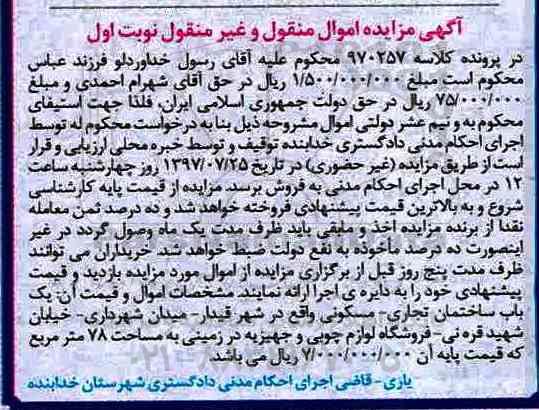 آگهی مزایده اموال منقول و غیر منقول نوبت اول
در پرونده کلاسه ۹۷۰۲۵۷ محکوم علیه آقای رسول خداوردلو فرزند عباس
محکوم است مبلغ ۱/۵۰۰/۰۰۰/۰۰۰ ریال در حق آقای شهرام احمدی و مبلغ
۷۵/۰۰۰/۰۰۰ ریال در حق دولت جمهوری اسلامی ایران، فلذا جهت استیفای
محکوم به و نیم عشر دولتی اموال مشروحه ذیل بنا به درخواست محکوم له توسط
اجرای احکام مدنی دادگستری خدابنده توقیف و توسط خبره محلی ارزیابی و قرار
است از طریق مزایده (غیر حضوری) در تاریخ ۱۳۹۷/۰۷/۲۵ روز چهارشنبه ساعت
۱۲ در محل اجرای احکام مدنی به فروش برسد. مزایده از قیمت پایه کارشناسی
شروع و به بالاترین قیمت پیشنهادی فروخته خواهد شد و ده درصد ثمن معامله
نقدا از برنده مزایده اخذ و مابقی باید ظرف مدت یک ماه وصول گردد در غیر
اینصورت ده درصد ماخوذه به نفع دولت ضبط خواهد شد. خریداران می توانند
ظرف مدت پنج روز قبل از برگزاری مزایده از اموال مورد مزایده بازدید و قیمت
پیشنهادی خود را به دایره ی اجرا ارائه نمایند. مشخصات اموال و قیمت آن: یک
باب ساختمان تجاری- مسکونی واقع در شهر قیدار- میدان شهرداری- خیابان
شهید قره نی- فروشگاه لوازم چوبی و جهیزیه در زمینی به مساحت ۷۸ متر مربع
که قیمت پایه آن ۷/۰۰۰/۰۰۰/۰۰۰ ریال می باشد.
یاری - قاضی اجرای احکام مدنی دادگستری شهرستان خدابنده